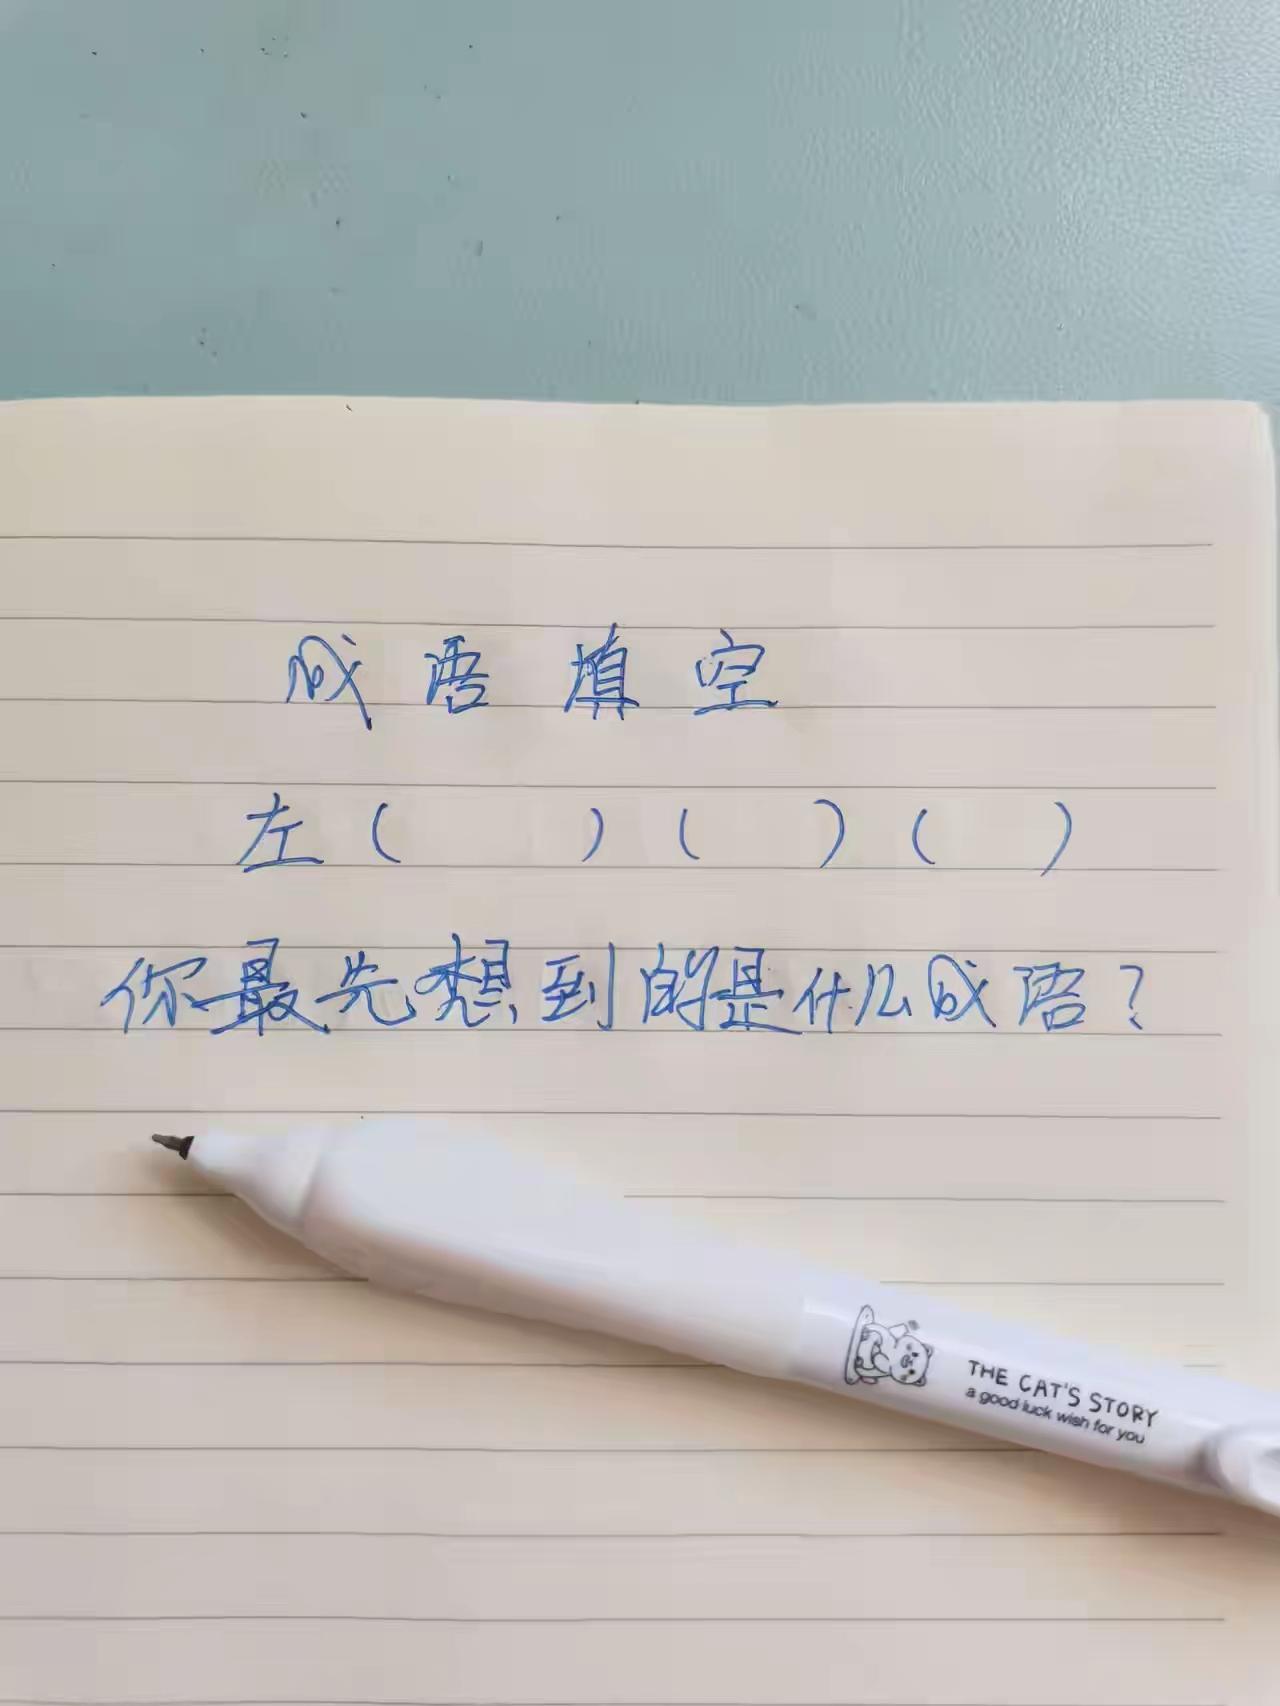 成语填空
左（　）（　）（　）
你最先想到的是什么成语？
THE CAT'S STORY
a good luck wish for you